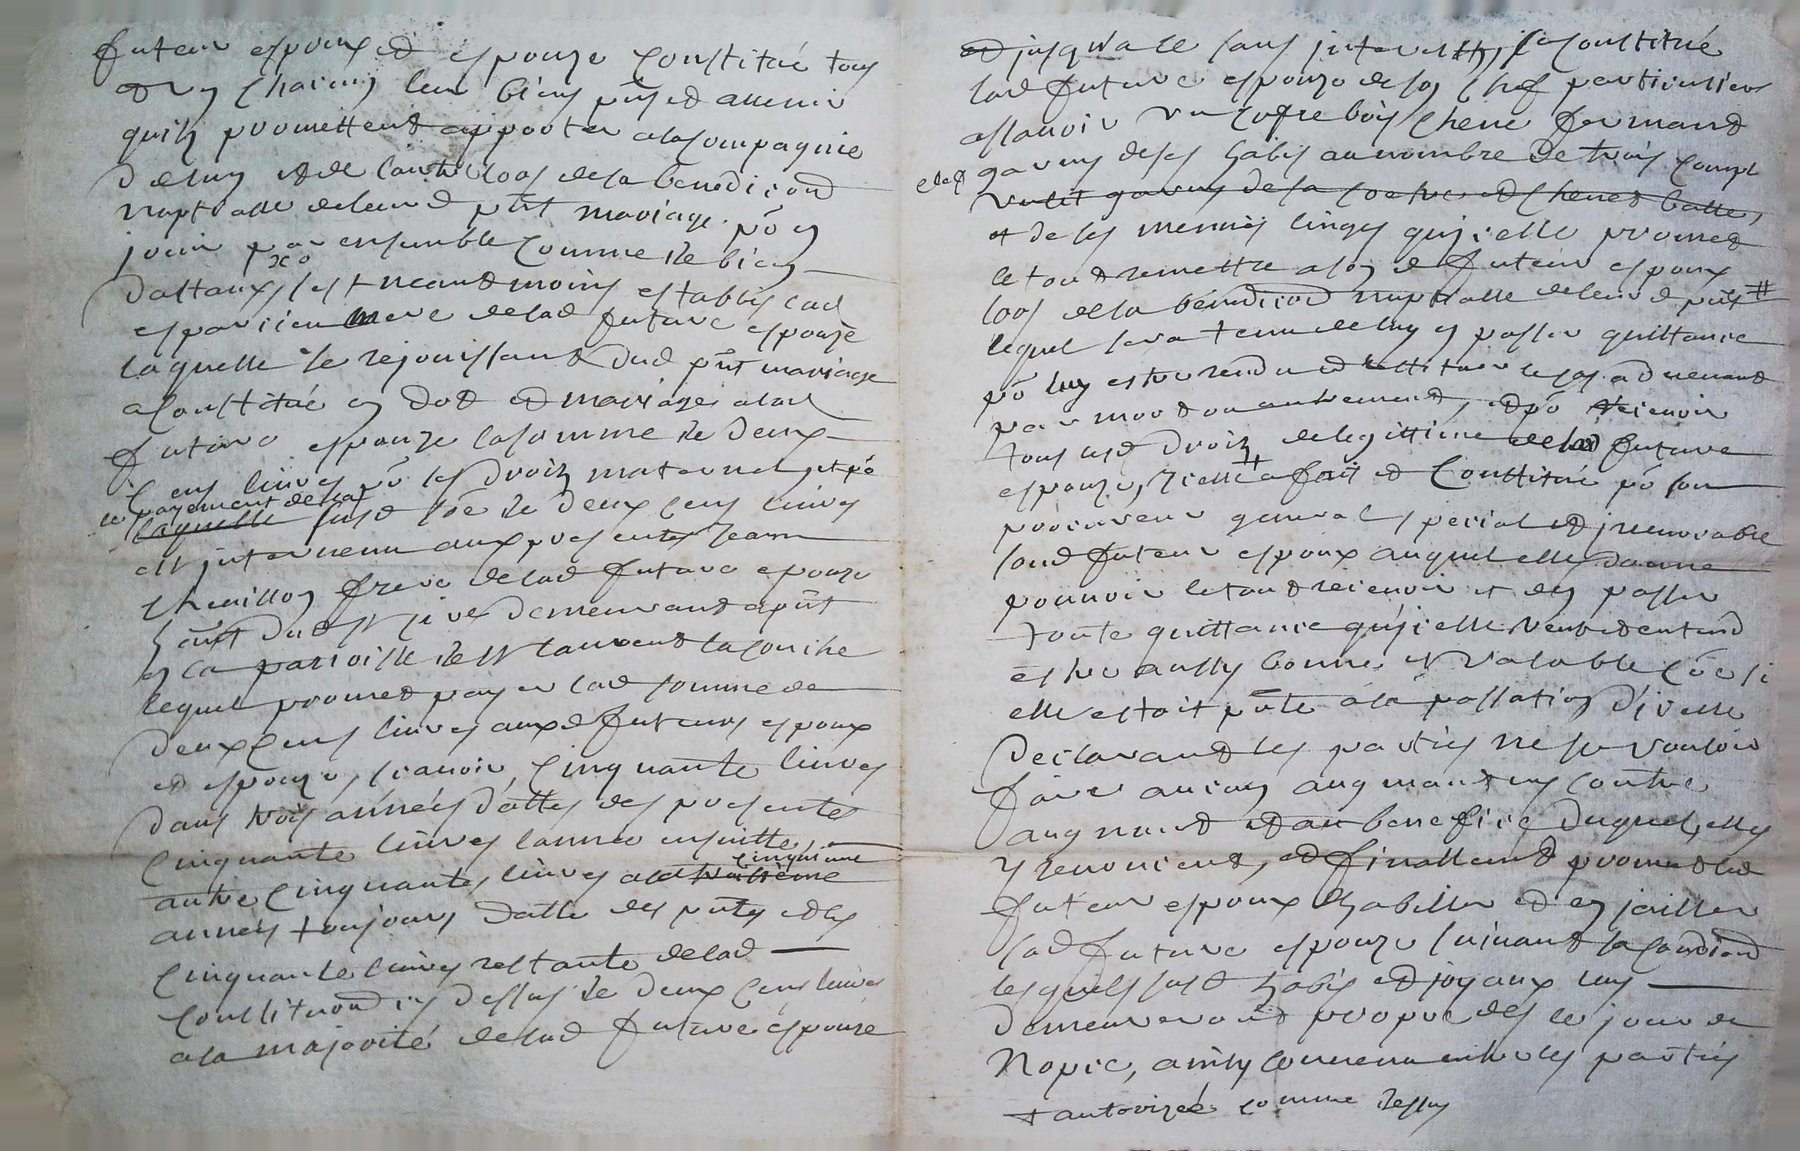 futeur espoux et espouze constitué tous
et un chacung leur biens pnts et advenir
quilz promettent apporter a la compagnie
de lung et de lautre lors de la benediction
nuptialle de leurd pnt mariage po en
jouir par ensemble comme de biens
dottaux, et neantmoins establie lad
mere de lad future espouze
laquelle se rejouissant dud pnt mariage
a constitué en dot et mariage a lad
future espouze la somme de deux
cens livres po ses droitz maternelz, et po
le payement de lad
laquelle susd soe de deux cens livres
est intervenu aux presentes Jean
frere de lad future epouze
demeurant a pnt
en la parroisse de St Laurent
lequel promet payer lad somme de
deux cens livres auxd futeurs espoux
et espouze, scavoir, cinquante livres
dans trois années datte des presentes
cinquante livres lannee ensuitte,
cinquieme
autre cinquante livres a la troisieme
année toujours datte des pntes et les
cinquante livres restante de lad
constitution cy dessus de deux cens livres
a la majorité de lad future espouze
et jusqua ce sans interest, se constitué
lad future espouze de son chef particulier
assavoir un cofre bois chene fermant
garny de ses habis au nombre de trois
un lit garny de sa et
et de ses menues linges quicelle promet
le tout remettre a son d futeur espoux
lors de la benediction nuptialle de leurd pnt #
lequel sera tenu de luy en passer quittance
po luy estre rendu et restituer le cas advenant
par mort ou autrement, et po recevoir
tous susd droitz de legittime de lad future
espouze, icelle a fait et constitué po son
procureur general special et irrevocable
sond futeur espoux auquel elle donne
pouvoir le tout recevoir et den passer
toute quittance quicelle veut et entend
estre aussy bonne et valable coe si
elle estoit pnte a la passation dicelle
declarant les parties ne se vouloir
faire aucung augment ny contre
augment et au benefice duquel, elles
y renoncent, et finallement promet led
futeur espoux dhabiller et enjoailler
lad future espouze suivant sa condition
lesquels susd habis et joyaux luy
demeureront propre des le jour de
nopce, ainsy convenu entre les parties
et autorizée comme dessus